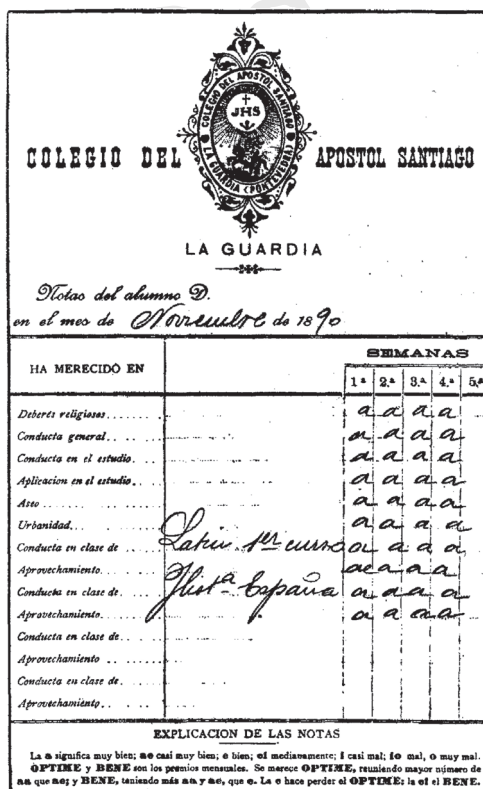 COLEGIO DEL APOSTOL SANTIAGO
LA GUARDIA (PONTEVEDRA)
JHS
COLEGIO DEL APOSTOL SANTIAGO
LA GUARDIA
Notas del alumno D.
en el mes de Noviembre de 1890
HA MERECIDO EN
SEMANAS
1ª 2.ª 3.ª 4.ª 5.ª
Deberes religiosos........ a a a a
Conducta general........ a a a a
Conducta en el estudio... a a a a
Aplicacion en el estudio... a a a a
Aseo........ a a a a
Urbanidad........ a a a a
Conducta en clase de... Latin 1er curso a a a a
Aprovechamiento........ ae a a a
Conducta en clase de... Histª España a a a a
Aprovechamiento........ a a a a
Conducta en clase de...
Aprovechamiento........
Conducta en clase de...
Aprovechamiento........
EXPLICACION DE LAS NOTAS
La a significa muy bien; ae casi muy bien; e bien; ei medianamente; i casi mal; io mal, o muy mal.
OPTIME y BENE son los premios mensuales. Se merece OPTIME, reuniendo mayor número de
aa que ae; y BENE, teniendo más aa y ae, que e. La e hace perder el OPTIME; la ei el BENE.